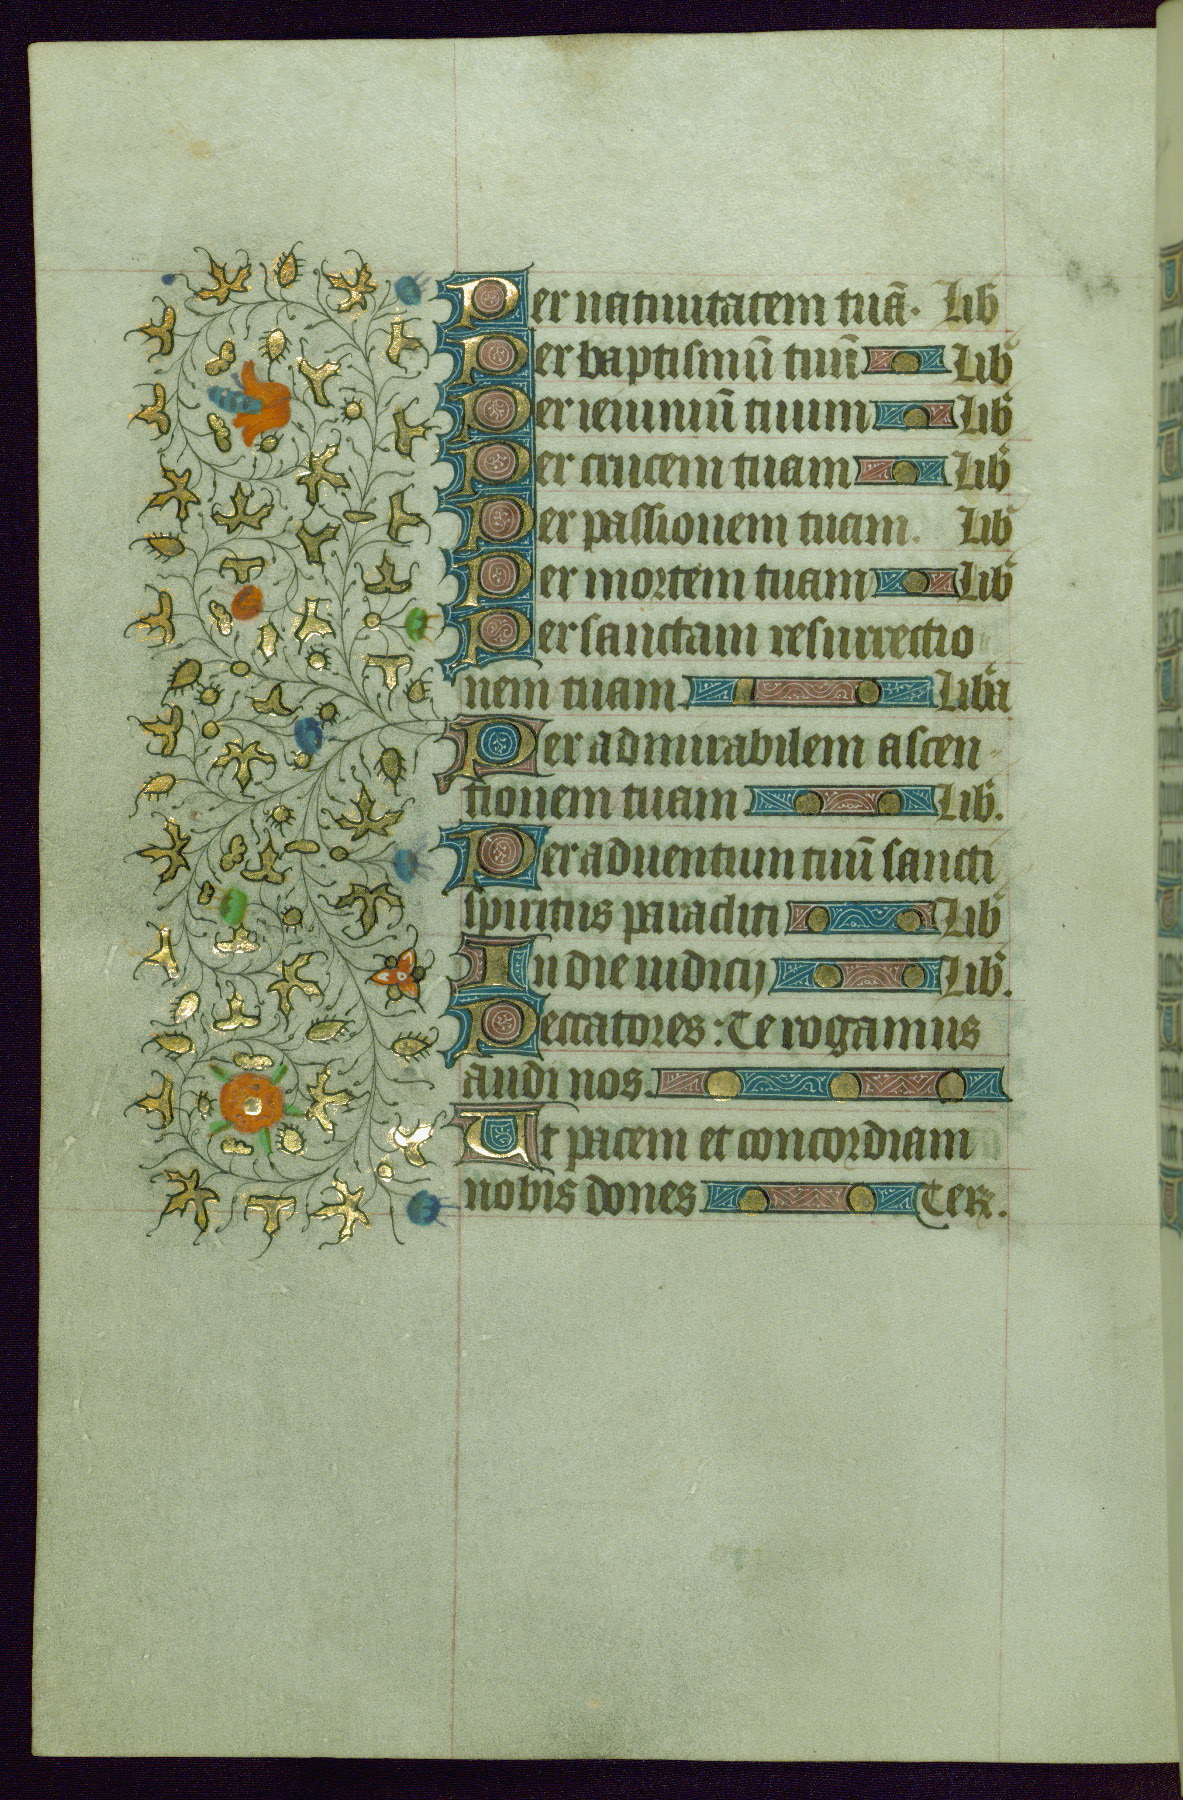 Per natiuitatem tuā. Lib
Per baptismū tuū Lib
Per ieiuniū tuum Lib
Per crucem tuam Lib
Per passionem tuam. Lib
Per mortem tuam Lib
Per sanctam resurrectio
nem tuam. Liba
Per admirabilem ascen-
tionem tuam Lib.
Per aduentum tuū sancti
spiritus paracliti Lib
In die iudicij Lib.
Peccatores: Te rogamus
audi nos.
Ut pacem et concordiam
nobis dones Ter.